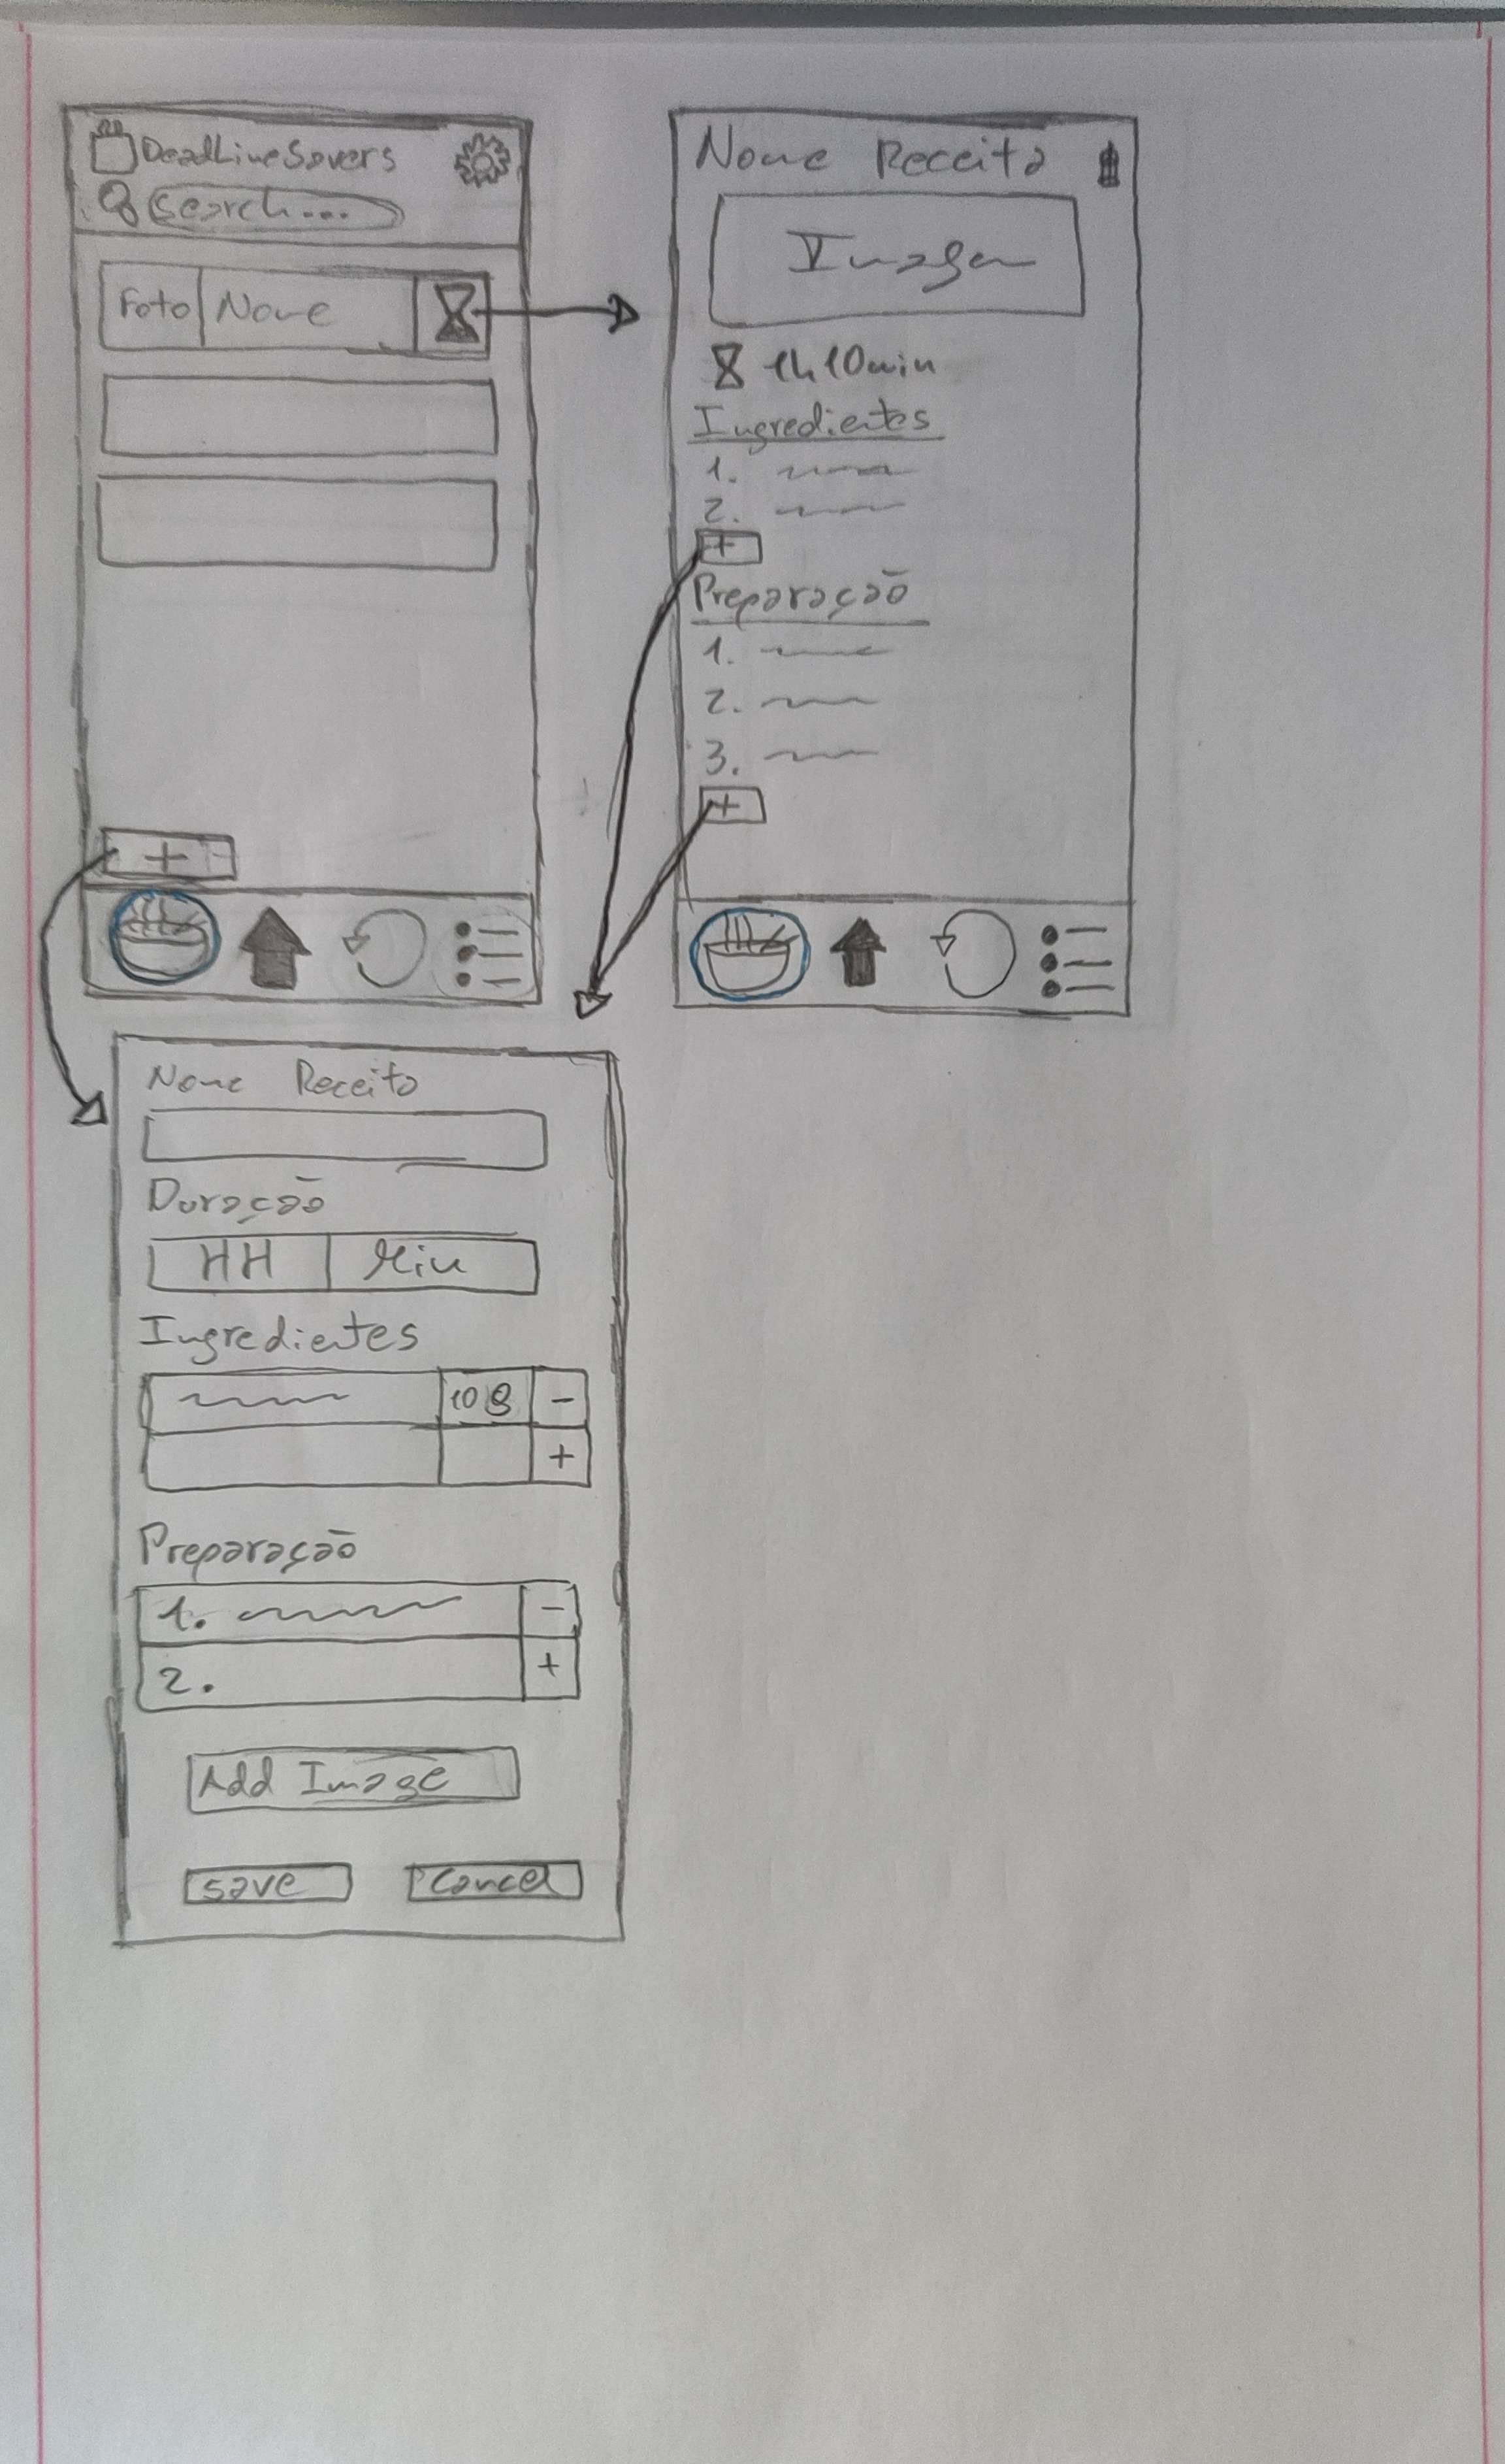 DeadLineSavers
Search...
Foto Nome
+
Nome Receita
Imagem
1h10min
Ingredientes
1.
2.
+
Preparação
1.
2.
3.
+
Nome Receita
Duração
HH Min
Ingredientes
10g -
+
Preparação
1. -
2. +
Add Image
Save Cancel